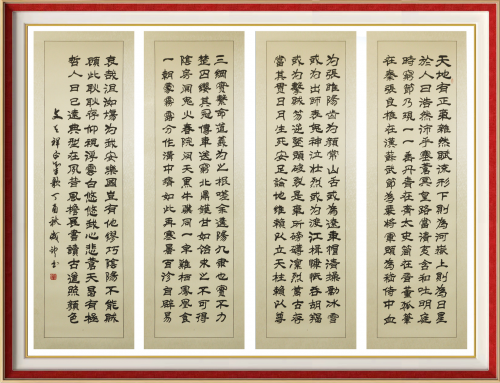 天地有正氣雜然賦流形下則為河嶽上則為日星
於人曰浩然沛乎塞蒼冥皇路當清夷含和吐明庭
時窮節乃現一一垂丹青在齊太史簡在晉董狐筆
在秦張良椎在漢蘇武節為嚴將軍頭為嵇侍中血
為張睢陽齒為顏常山舌或為遼東帽清操勵冰雪
或為出師表鬼神泣壯烈或為渡江楫慷慨吞胡羯
或為擊賊笏逆豎頭破裂是氣所磅礴凜烈萬古存
當其貫日月生死安足論地維賴以立天柱賴以尊
三綱實繫命道義為之根嗟余遘陽九隸也實不力
楚囚纓其冠傳車送窮北鼎鑊甘如飴求之不可得
陰房闃鬼火春院閟天黑牛驥同一皁雞栖鳳凰食
一朝蒙霧露分作溝中瘠如此再寒暑百沴自辟易
哀哉沮洳場為我安樂國豈有他繆巧陰陽不能賊
顧此耿耿存仰視浮雲白悠悠我心悲蒼天曷有極
哲人日已遠典型在夙昔風檐展書讀古道照顏色
文天祥正氣歌丁酉秋